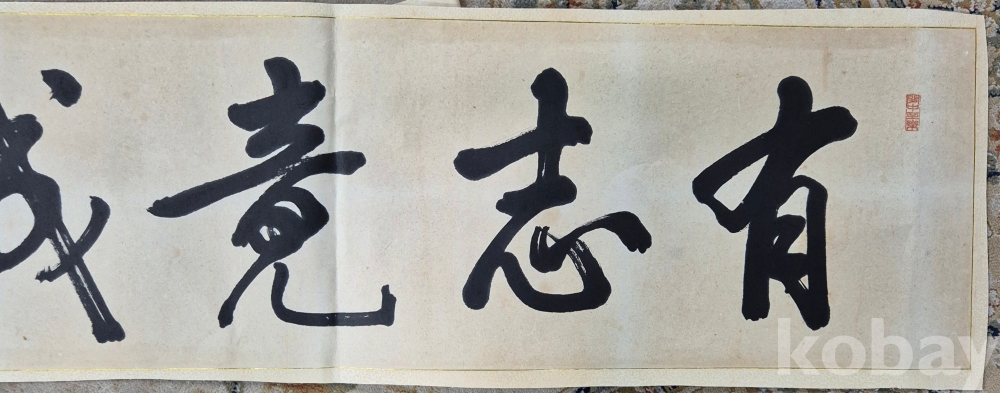 有志竟成
kobay